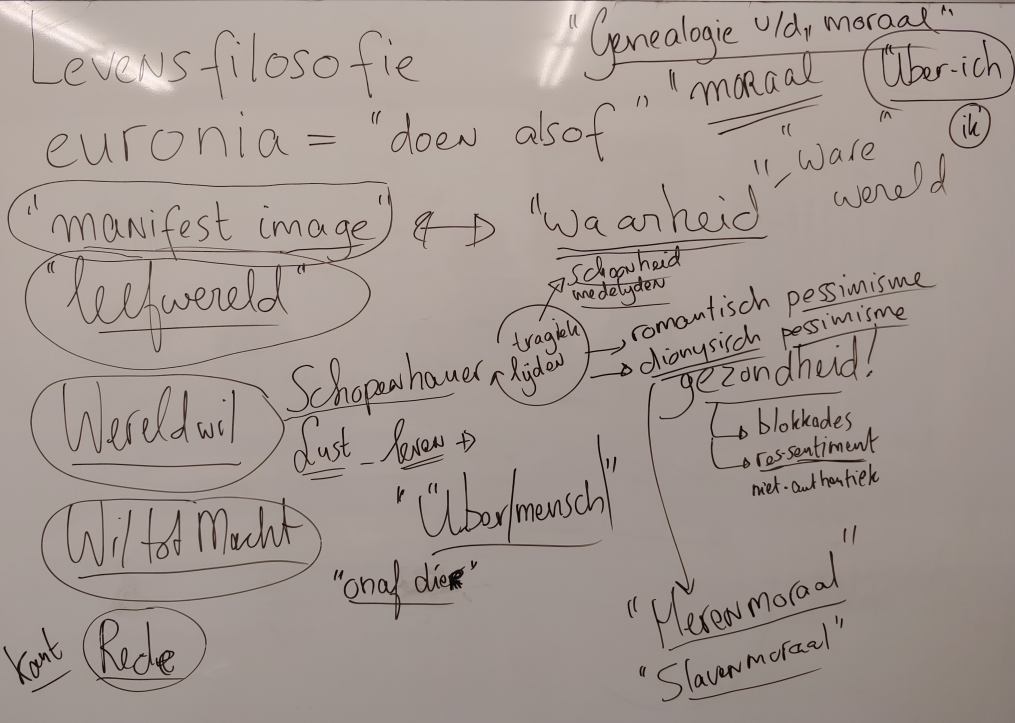 Levensfilosofie
"Genealogie v/d moraal"
"moraal"
Über-ich
ik
euronia = "doen alsof"
"manifest image" ↔ "waarheid" - "ware
wereld"
"leefwereld"
schoonheid
medelijden
tragiek
lijden
romantisch pessimisme
dionysisch pessimisme
gezondheid!
blokkades
res-sentiment
niet-authentiek
Wereldwil
Schopenhauer
Lust - leven →
"Über/mensch"
Wil tot Macht
"onaf dier"
"Herenmoraal"
"Slavenmoraal"
Kant
Rede